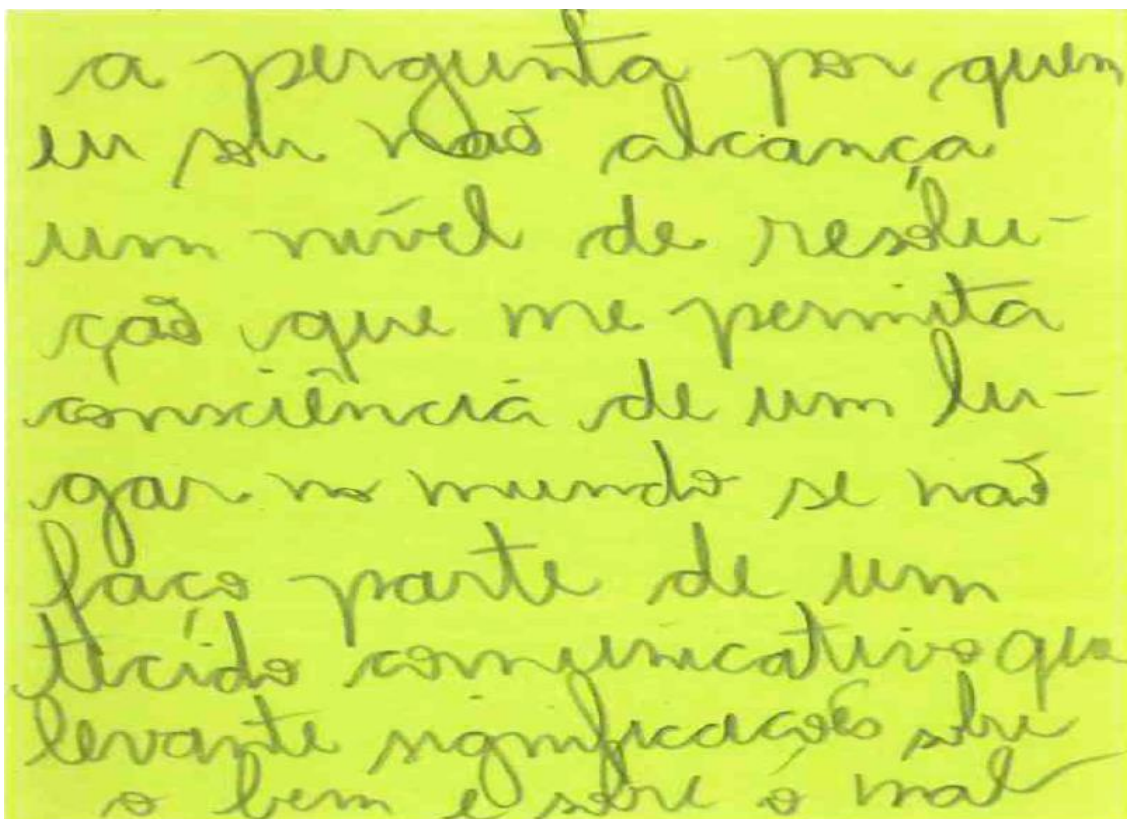 a pergunta por quem
eu sou não alcança
um nível de resolu-
ção que me permita
consciência de um lu-
gar no mundo se não
faço parte de um
tecido comunicativo que
levante significações sobre
o bem e sobre o mal